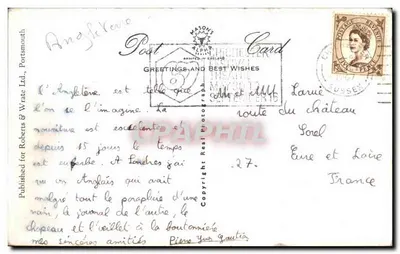 Angleterre
Post Card
MASON'S
ALPHA
GREETINGS AND BEST WISHES
SUSSEX
Published for Roberts & Water Ltd., Portsmouth
Copyright Real Photograph
L'Angleterre est telle que
l'on se l'imagine. La
nourriture est
depuis 15 jours le temps
est superbe. A Londres j'ai
vu un Anglais qui avait
malgré tout le parapluie d'une
main, le journal de l'autre, le
chapeau et l'oeillet à la boutonnière
mes sincères amitiés Pierre Yves
M et Mme
route du château
Sorel
Eure et Loire
27.
France